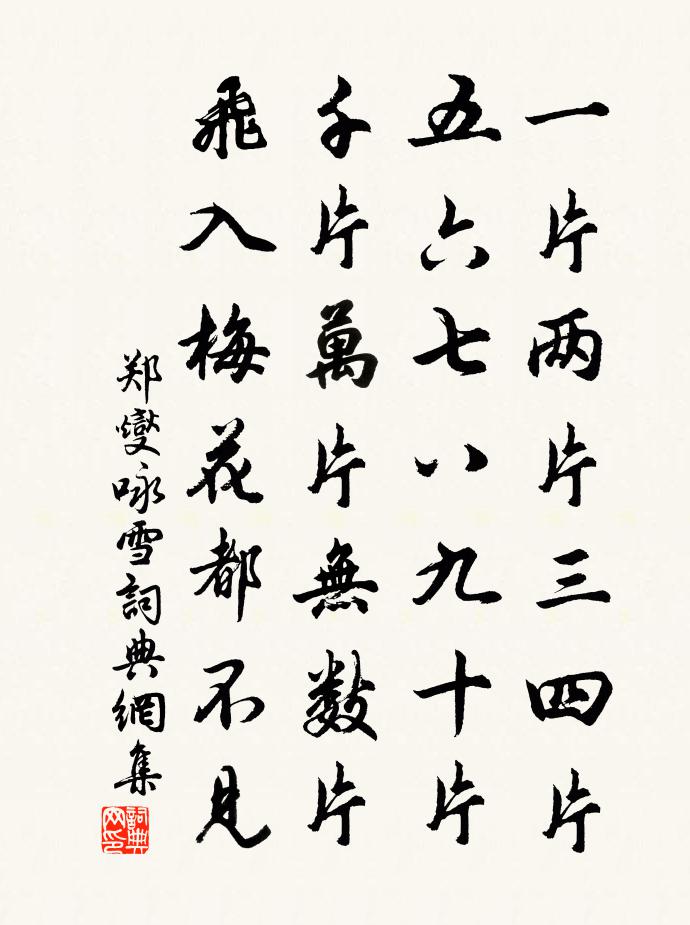 一片两片三四片
五六七八九十片
千片萬片無数片
飛入梅花都不見
郑燮咏雪詞典網集
詞典网印